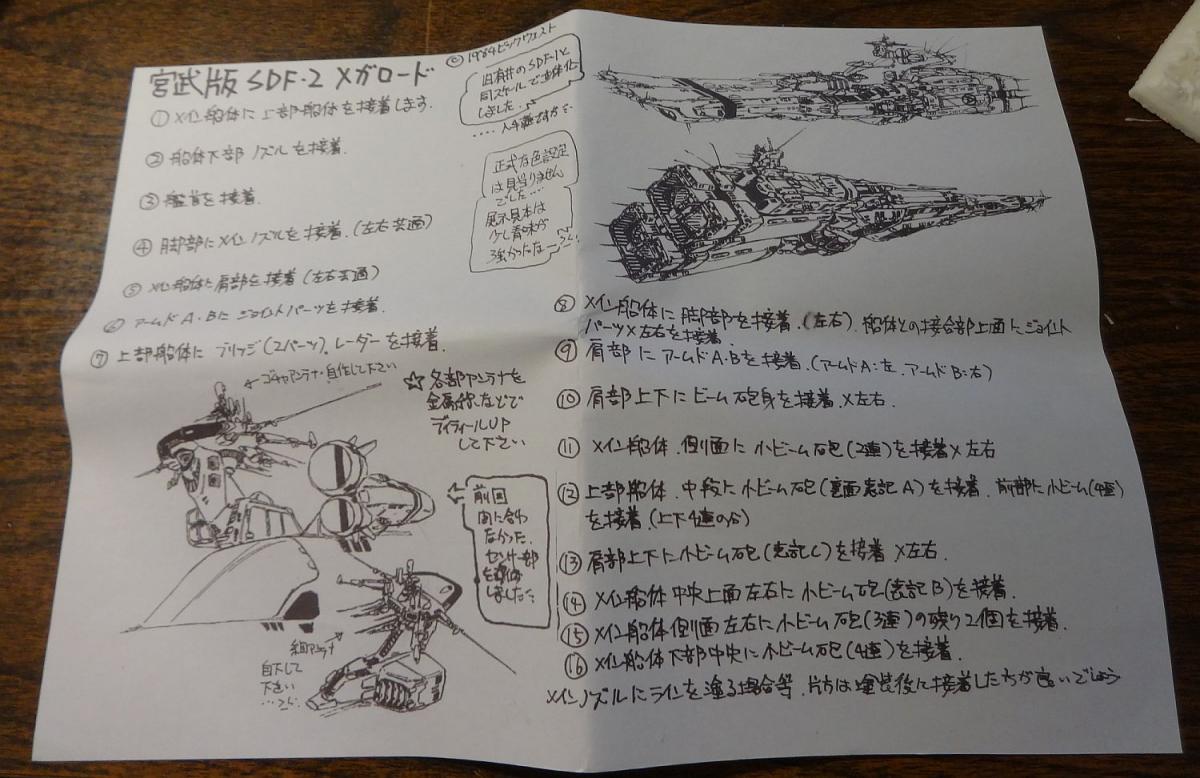 宮武版 SDF・2 メガロード
© 1984 ビックウエスト
旧有井のSDF-1と
同スケールで立体化
しました
正式な色設定
は見当りません
でした…
展示見本は
少し青味が
強かったな
① メイン船体に上部船体を接着します.
② 船体下部ノズルを接着.
③ 艦首を接着.
④ 脚部にメインノズルを接着.(左右共通)
⑤ メイン船体に肩部を接着(左右共通)
⑥ アームドA・Bにジョイントパーツを接着.
⑦ 上部船体にブリッジ(2パーツ)、レーダーを接着.
自作して下さい
☆各部アンテナを
金属線などで
ディティールUP
して下さい
前回
間に合わ
なかった
センサー部
を
しました
自作して
下さい
⑧ メイン船体に脚部を接着.(左右). 船体との接合部上面にジョイント
パーツ×左右を接着.
⑨ 肩部にアームドA・Bを接着.(アームドA:左、アームドB:右)
⑩ 肩部上下にビーム砲身を接着×左右.
⑪ メイン船体、側面に小ビーム砲(2連)を接着×左右
⑫ 上部船体、中段に小ビーム砲(裏面表記A)を接着. 前部に小ビーム(4連)
を接着.(上下4連のち)
⑬ 肩部上下に小ビーム砲(表記C)を接着×左右.
⑭ メイン船体中央上面左右に小ビーム砲(表記B)を接着.
⑮ メイン船体側面左右に小ビーム砲(3連)の残り2個を接着.
⑯ メイン船体下部中央に小ビーム砲(4連)を接着.
メインノズルにラインを塗る場合等、片方は塗装後に接着した方が良いでしょう